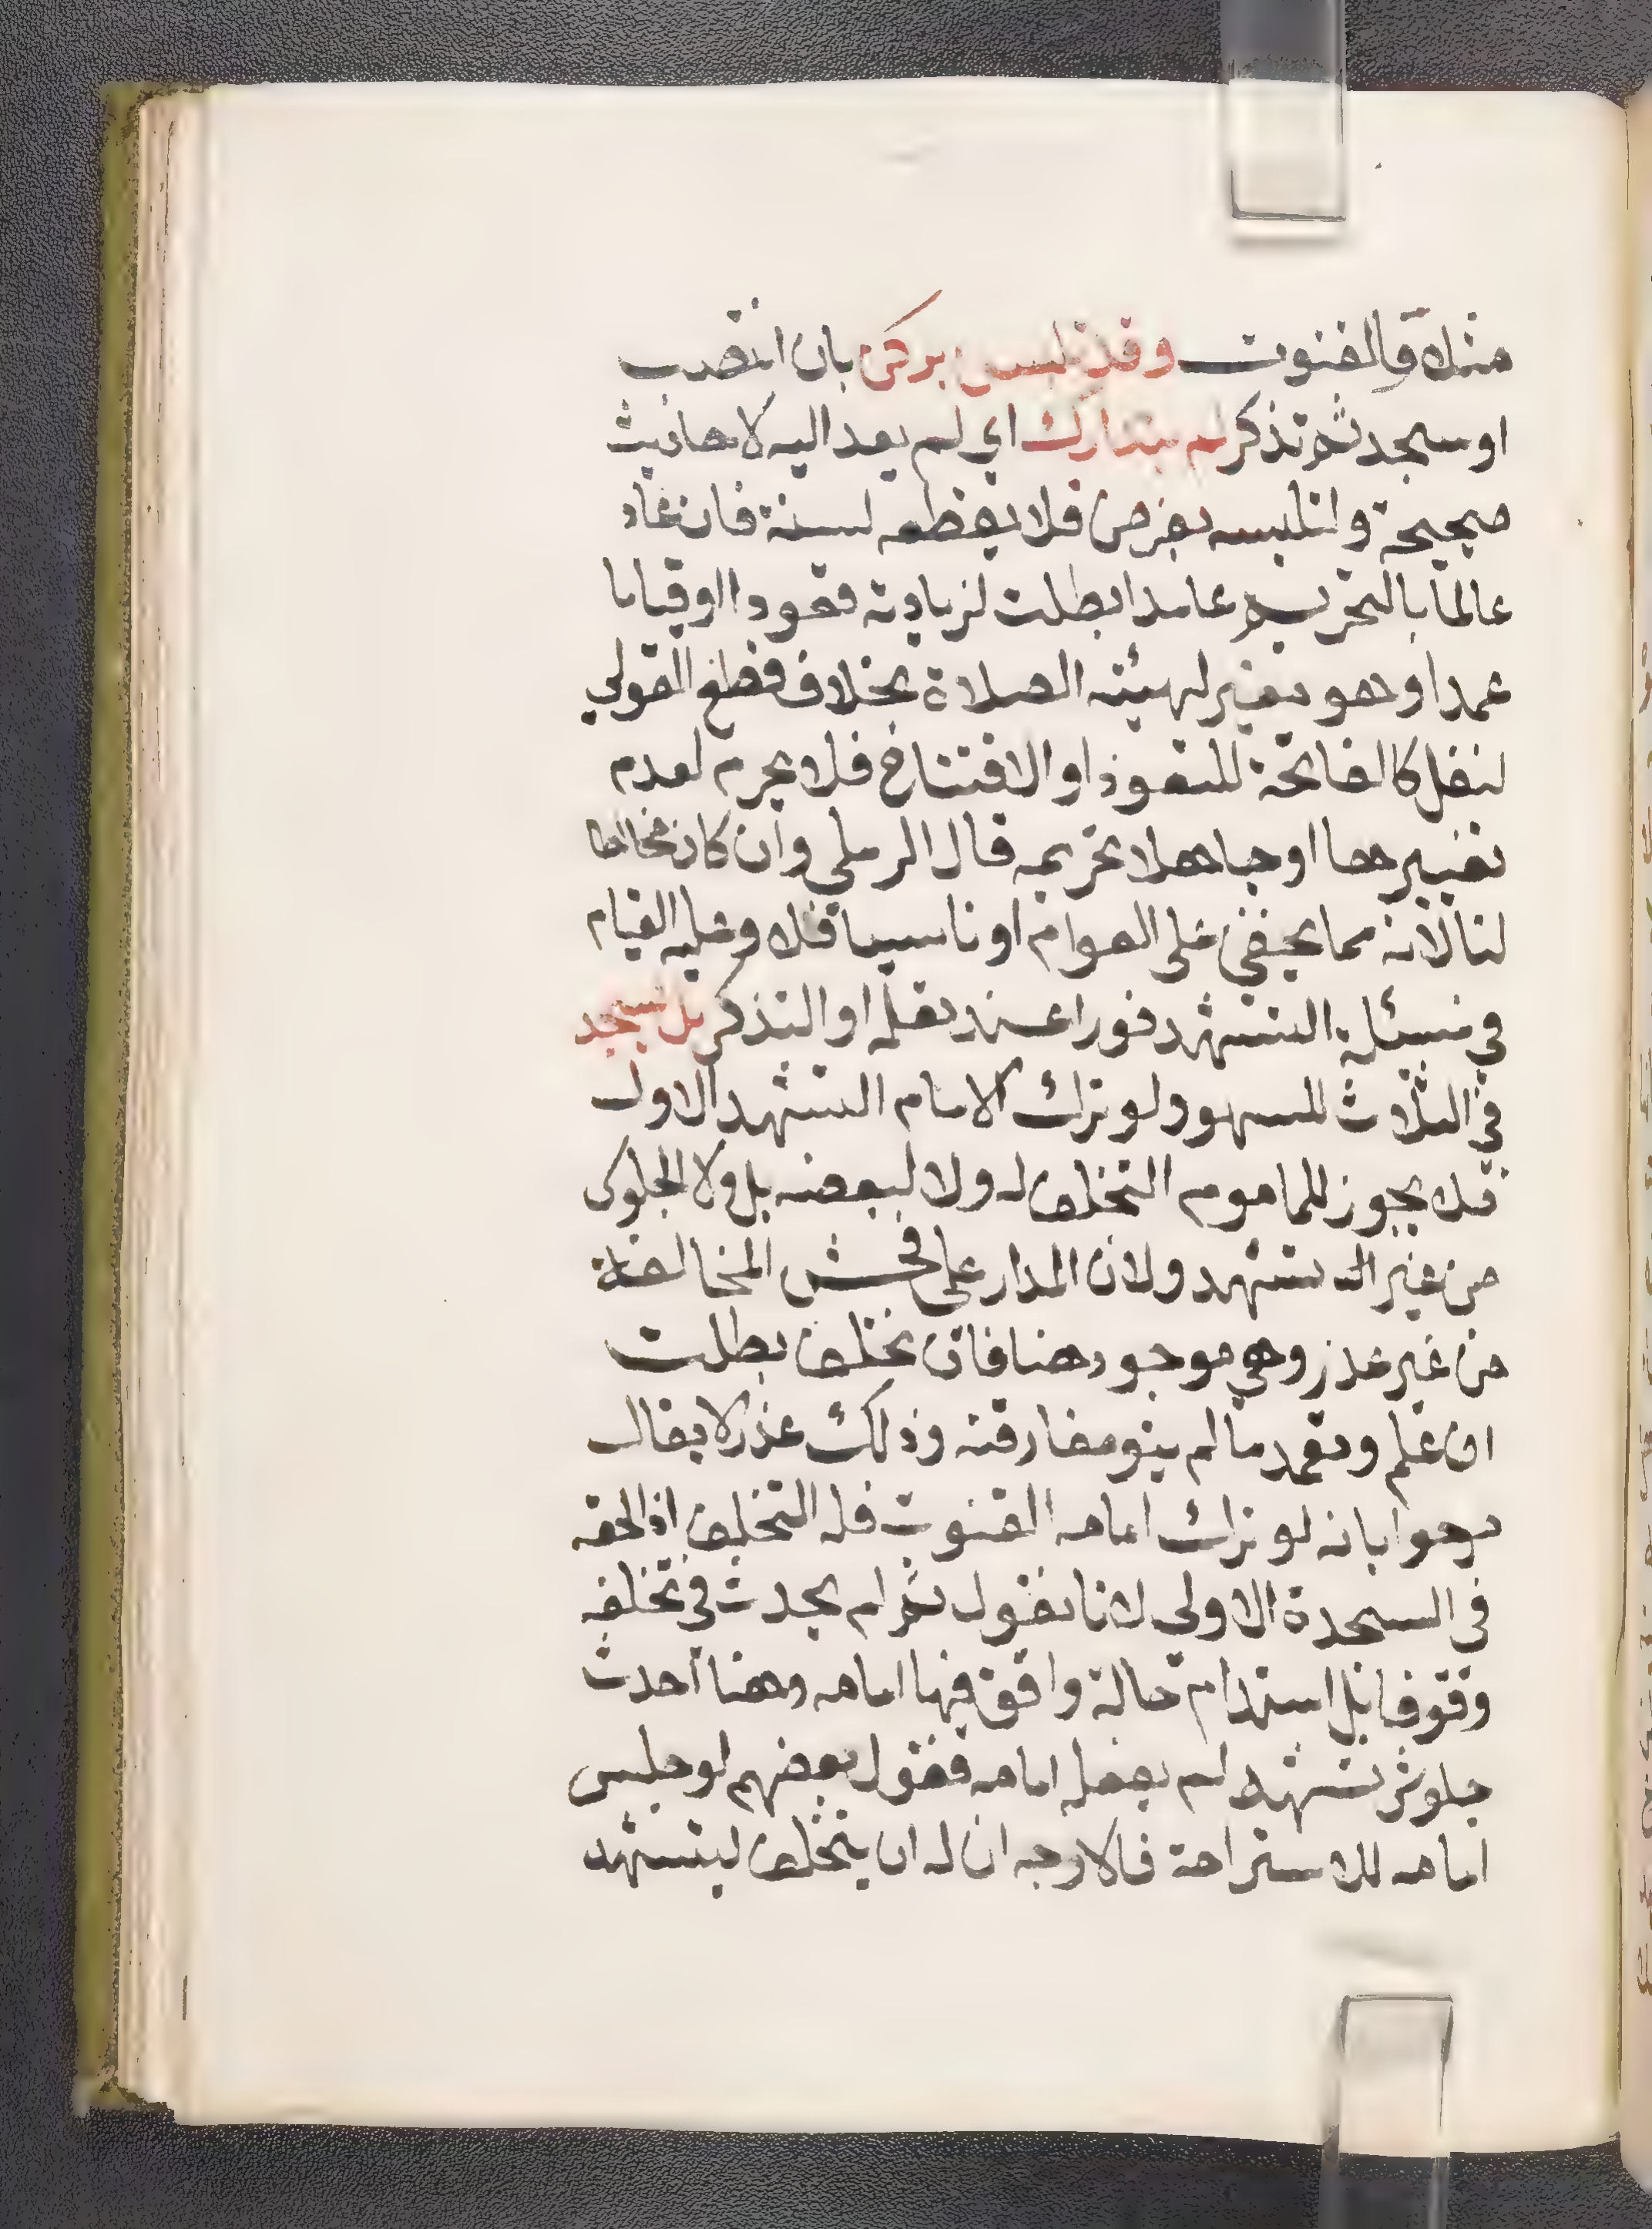 مثلا والقنوت وقد تلبس بركن بان انتصب
او سجد ثم تذكر لم يتدارك اي لم يعد اليه لاحاديث
صحيحة ولتلبسه بفرض فلا يقطعه لسنة فان عاد
عالما بالتحريم عامدا بطلت لزيادته قعودا او قياما
عمدا وهو مغير لهيئته الصلاة بخلاف قطع القولي
لنفل كالفاتحة للتعوذ او الافتتاح فلا يحرم لعدم
تغييرها او جاهلا تحريمه قال الرملي وان كان مخالطا
لنا لانه مما يخفى على العوام او ناسيا فلا وعليه القيام
في مسئلة التشهد فورا عند تعلمه او التذكر بل يسجد
في الثلاث للسهو ولو ترك الامام التشهد الاول
فلا يجوز للماموم التخلف له ولا لبعضه بل ولا الجلوس
من غير التشهد ولان المدار على فحش المخالفة
من غير عذر وهي موجود هنا فان تخلف بطلت
ان علم وتعمد ما لم ينو مفارقته وذلك عذر لا يقال
صرحوا بانه لو ترك امامه القنوت فله التخلف اذا لحقه
في السجدة الاولى لانا نقول ثم لم يحدث في تخلفه
وقوفا بل استدام حالة وافق فيها امامه وهنا احدث
جلوس تشهد لم يفعله امامه فقول بعضهم لو جلس
امامه للاستراحة فالاوجه ان له ان يتخلف ليتشهد